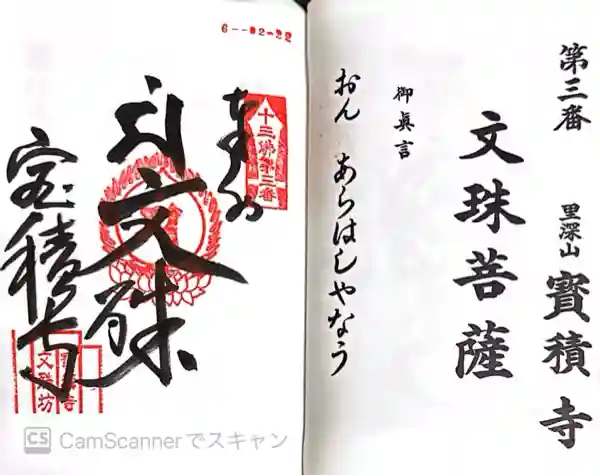 第三番
里深山 寳積寺
文珠菩薩
御真言
おん あらはしやなう
6--02-22
十三佛第三番
文珠
宝積寺
文珠坊
CS CamScannerでスキャン